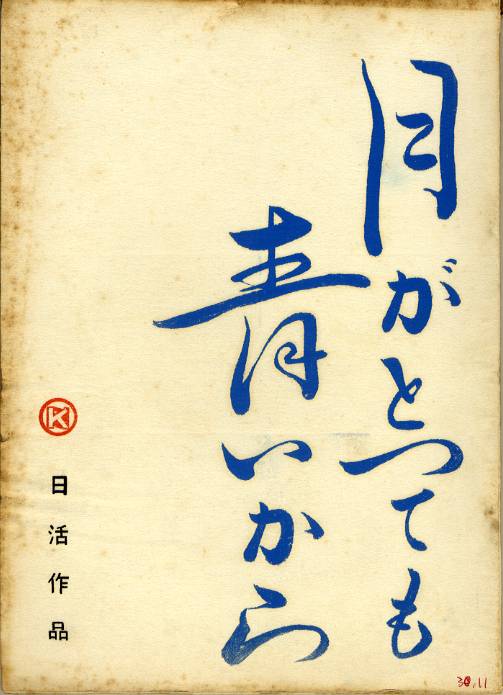 月がとっても
青いから
日活作品
30.11